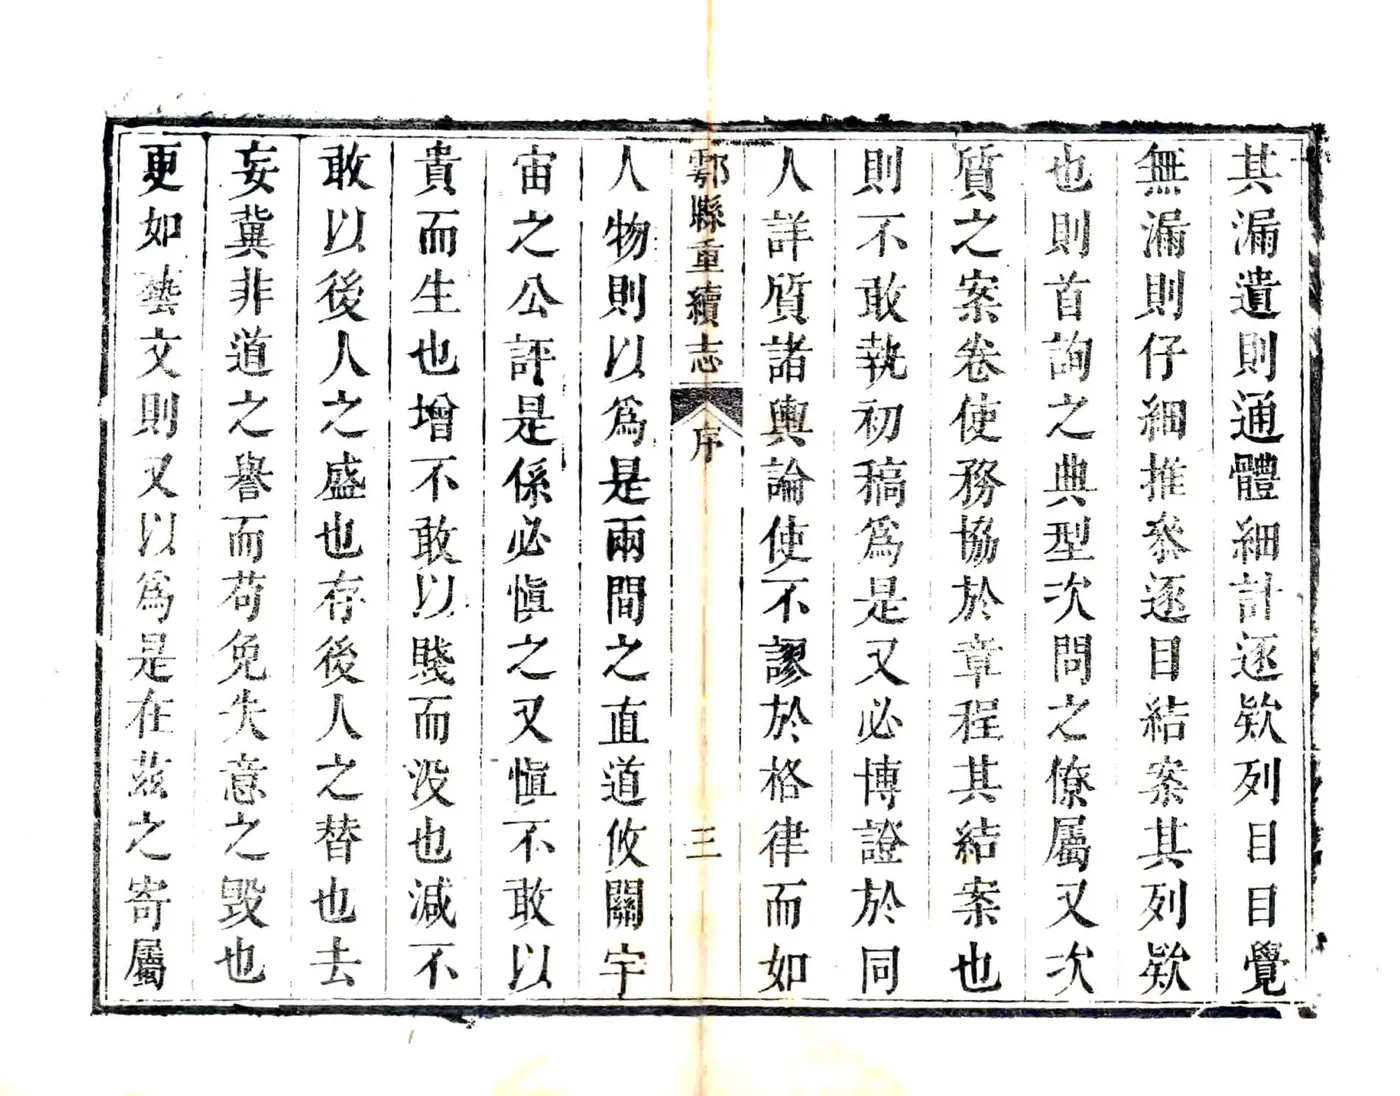 其漏遺則通體細計逐欵列目目覺
無漏則仔細推叅逐目結案其列欵
也則首詢之典型次問之僚屬又次
質之案卷使務協於章程其結案也
則不敢執初稿爲是又必博證於同
人詳質諸輿論使不謬於格律而如
鄠縣重續志 序 三
人物則以爲是兩間之直道攸關宇
宙之公評是係必愼之又愼不敢以
貴而生也增不敢以賤而没也減不
敢以後人之盛也存後人之替也去
妄冀非道之譽而苟免失意之毁也
更如藝文則又以爲是在茲之寄屬